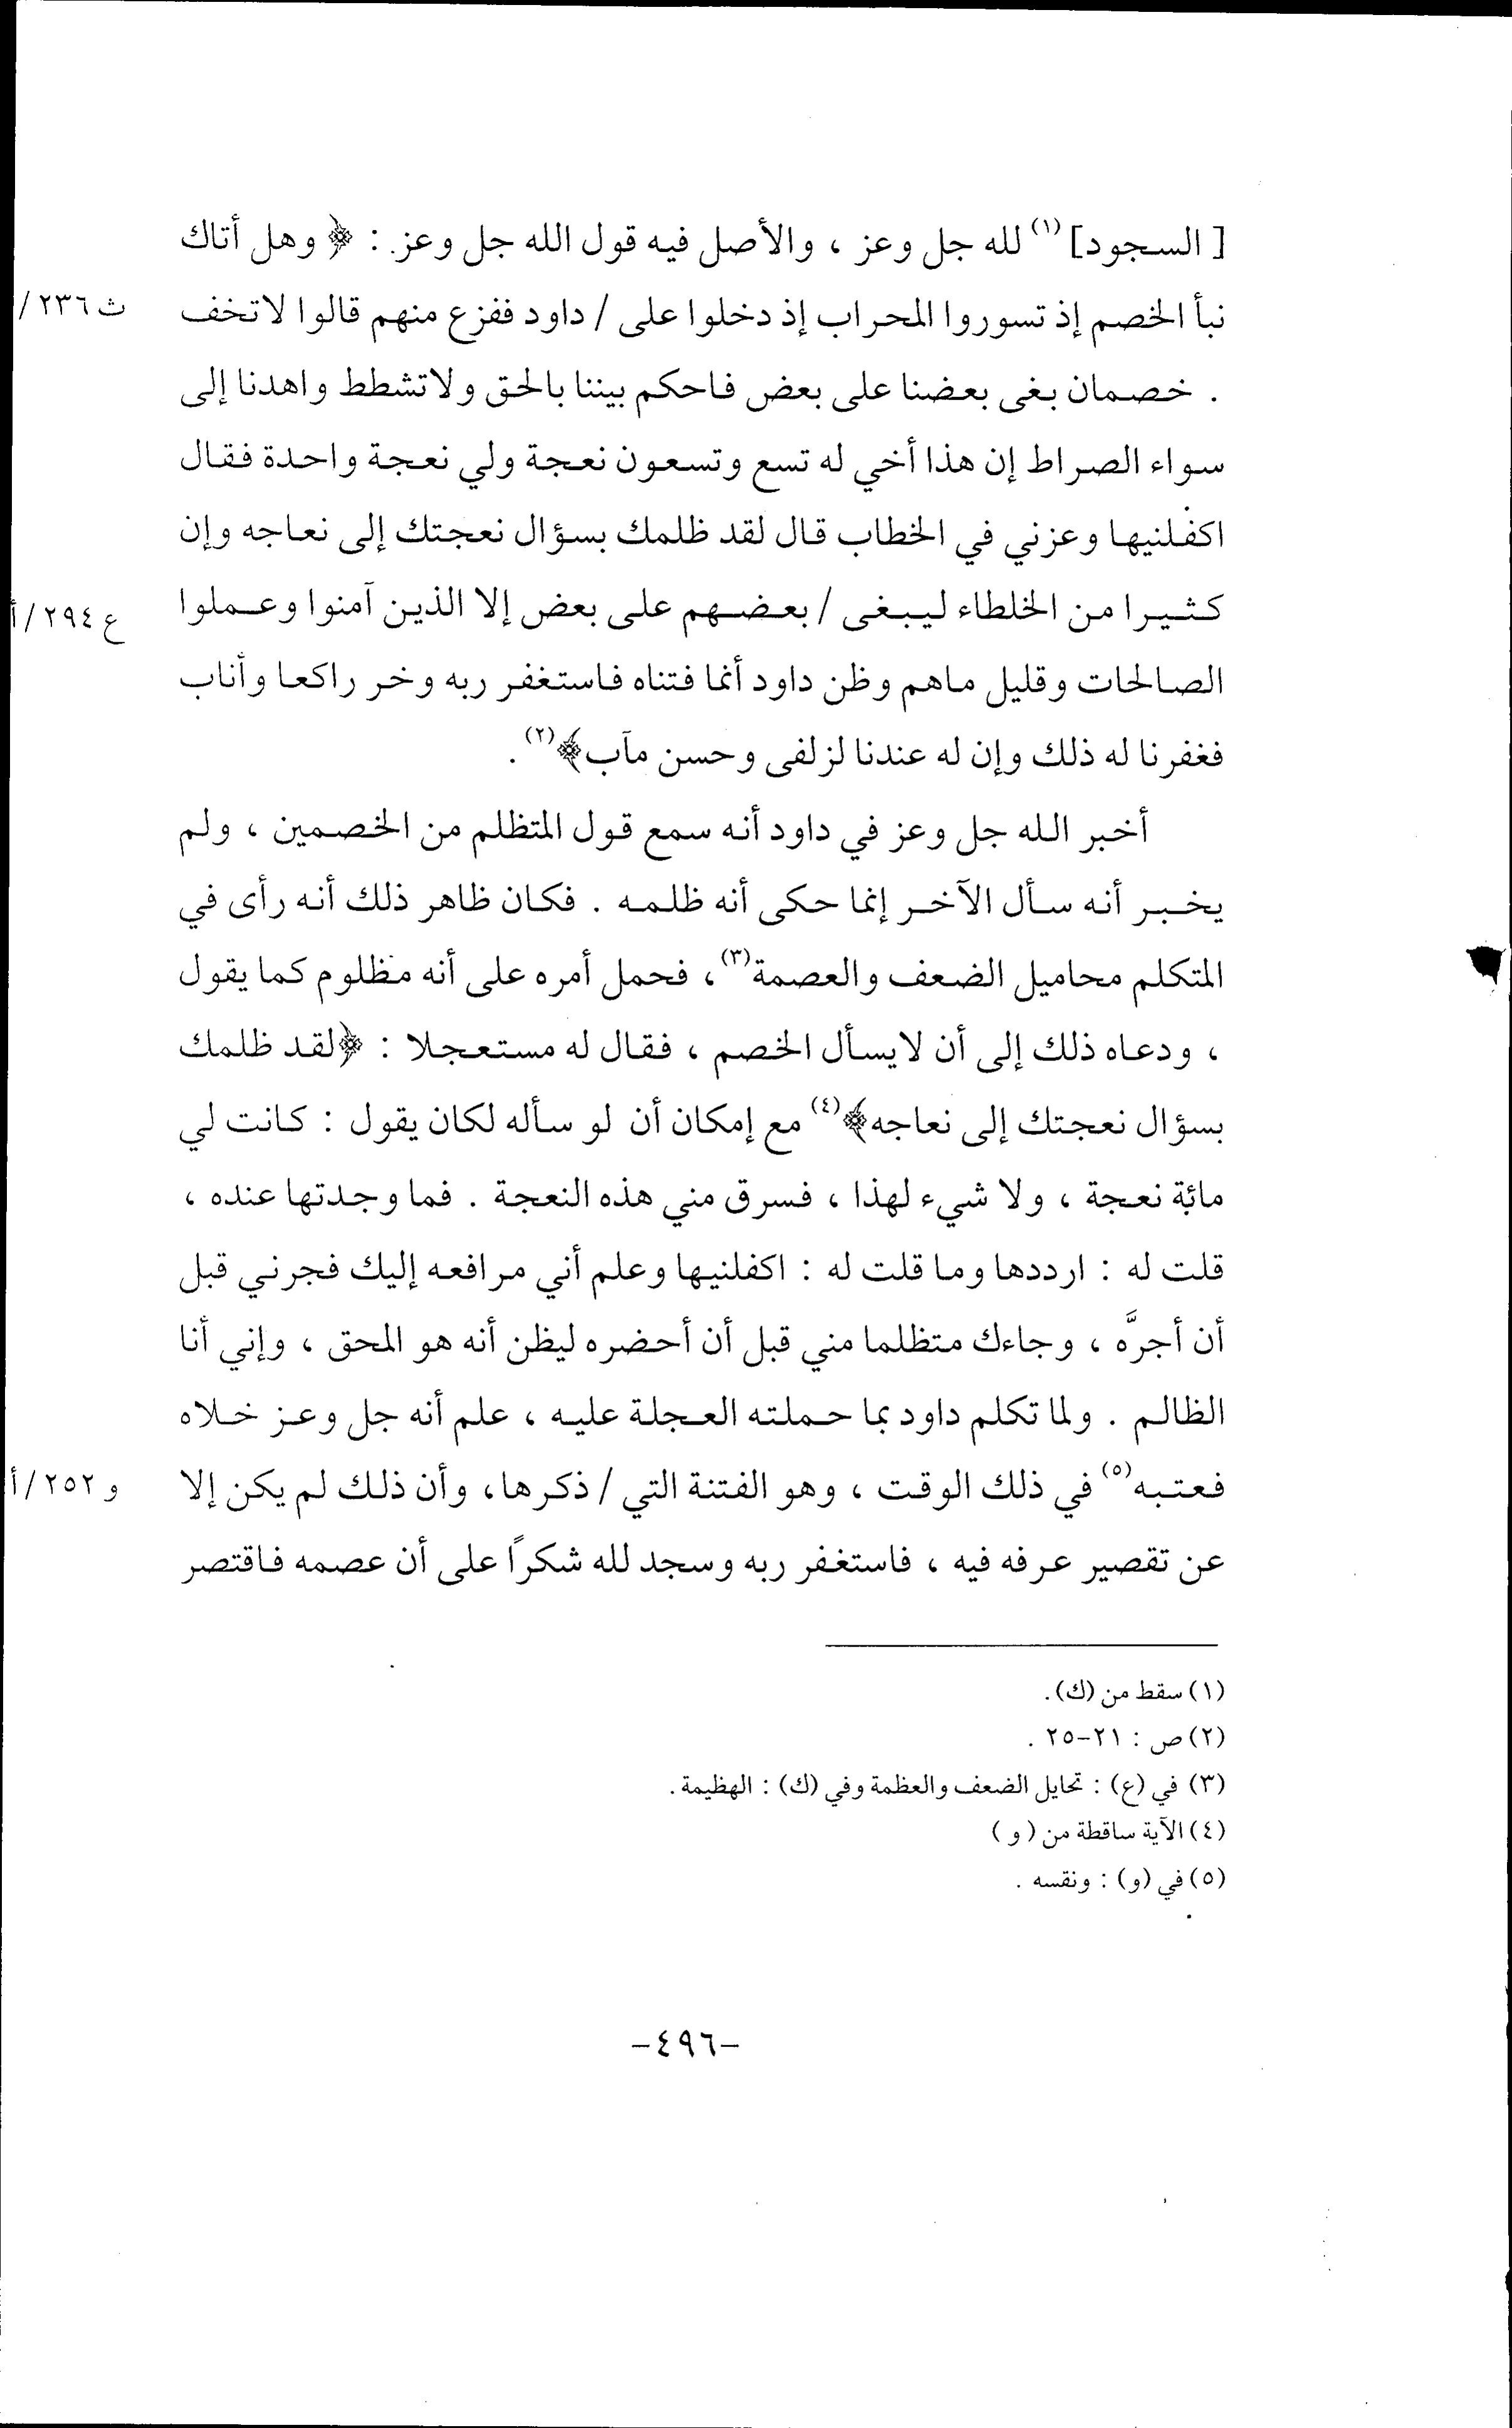 [ السجود] (١) لله جل وعز ، والأصل فيه قول الله جل وعز : ﴿ وهل أتاك
نبأ الخصم إذ تسوروا المحراب إذ دخلوا على / داود ففزع منهم قالوا لاتخف
ث ٢٣٦ /
. خصمان بغى بعضنا على بعض فاحكم بيننا بالحق ولاتشطط واهدنا إلى
سواء الصراط إن هذا أخي له تسع وتسعون نعجة ولي نعجة واحدة فقال
اكفلنيها وعزني في الخطاب قال لقد ظلمك بسؤال نعجتك إلى نعاجه وإن
كثيرا من الخلطاء ليبغى / بعضهم على بعض إلا الذين آمنوا وعملوا
ع ٢٩٤ / أ
الصالحات وقليل ماهم وظن داود أنما فتناه فاستغفر ربه وخر راكعا وأناب
فغفرنا له ذلك وإن له عندنا لزلفى وحسن مآب﴾ (٢) .
أخبر الله جل وعز في داود أنه سمع قول المتظلم من الخصمين ، ولم
يخبر أنه سأل الآخر إنما حكى أنه ظلمه . فكان ظاهر ذلك أنه رأى في
المتكلم محاميل الضعف والعصمة (٣) ، فحمل أمره على أنه مظلوم كما يقول
، ودعاه ذلك إلى أن لايسأل الخصم ، فقال له مستعجلا : ﴿لقد ظلمك
بسؤال نعجتك إلى نعاجه﴾ (٤) مع إمكان أن لو سأله لكان يقول : كانت لي
مائة نعجة ، ولا شيء لهذا ، فسرق مني هذه النعجة . فما وجدتها عنده ،
قلت له : ارددها وما قلت له : اكفلنيها وعلم أني مرافعه إليك فجرني قبل
أن أجرَّه ، وجاءك متظلما مني قبل أن أحضره ليظن أنه هو المحق ، وإني أنا
الظالم . ولما تكلم داود بما حملته العجلة عليه ، علم أنه جل وعز خلاه
فعتبه (٥) في ذلك الوقت ، وهو الفتنة التي / ذكرها، وأن ذلك لم يكن إلا
و ٢٥٢ / أ
عن تقصير عرفه فيه ، فاستغفر ربه وسجد لله شكرًا على أن عصمه فاقتصر
(١) سقط من (ك).
(٢) ص : ٢١-٢٥ .
(٣) في (ع) : تحايل الضعف والعظمة وفي (ك) : الهظيمة .
(٤) الآية ساقطة من ( و )
(٥) في (و) : ونقسه .
-٤٩٦-